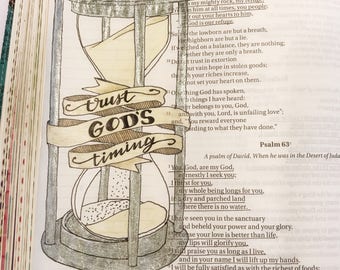 trust
GOD'S
timing
my mighty rock, my
him at all times, you people;
out your hearts to him,
is our refuge.
the lowborn are but a breath,
highborn are but a lie.
weighed on a balance, they are nothing;
ether they are only a breath.
not trust in extortion
put vain hope in stolen goods;
ugh your riches increase,
not set your heart on them.
thing God has spoken,
things I have heard:
er belongs to you, God,
with you, Lord, is unfailing love";
and, "You reward everyone
ording to what they have done."
Psalm 63
A psalm of David. When he was in the Desert of Juda
You, God, are my God,
earnestly I seek you;
thirst for you,
my whole being longs for you,
a dry and parched land
here there is no water.
have seen you in the sanctuary
and beheld your power and your glory.
ause your love is better than life,
my lips will glorify you.
ill praise you as long as I live,
and in your name I will lift up my hands.
I will be fully satisfied as with the richest of foods;